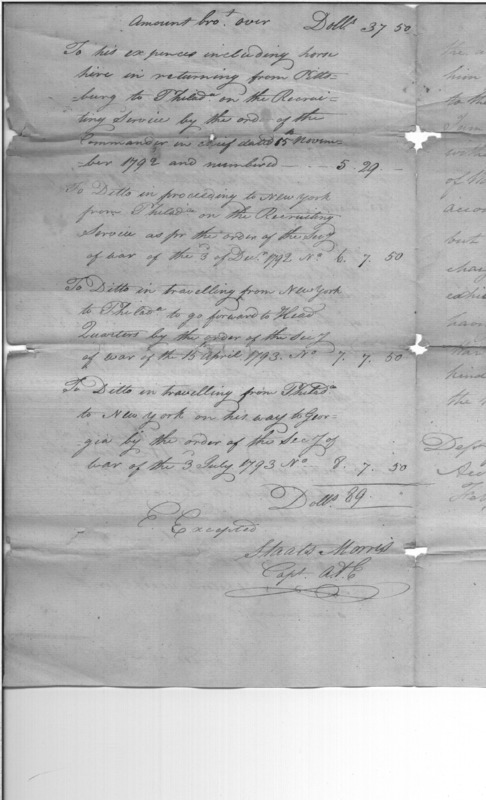 Amount bro.t over Doll.s 37 50
To his expences including horse
hire in returning from Pitts-
burg to Philad.a on the Recrui-
ting Service by the order of the
Commander in cheif dated 15th Novem-
ber 1792 and numbered 5 29
To Ditto in proceeding to New York
from Philad.a on the Recruiting
Service as pr the order of the Sec.y
of war of the 3 of Dec.r 1792 No 6. 7. 50
To Ditto in travelling from New York
to Philad.a to go forward to Head
Quarters by the order of the Sec.y
of war of the 15 April 1793. No 7. 7. 50
To Ditto in travelling from Philad.a
to New York on his way to Geor-
gia by the order of the Sec.y of
war of the 3 July 1793 No 8. 7. 50
Doll.s 89.
E Excepted
Staats Morris
Capt. ADC
him
to the
of
acco
but
the